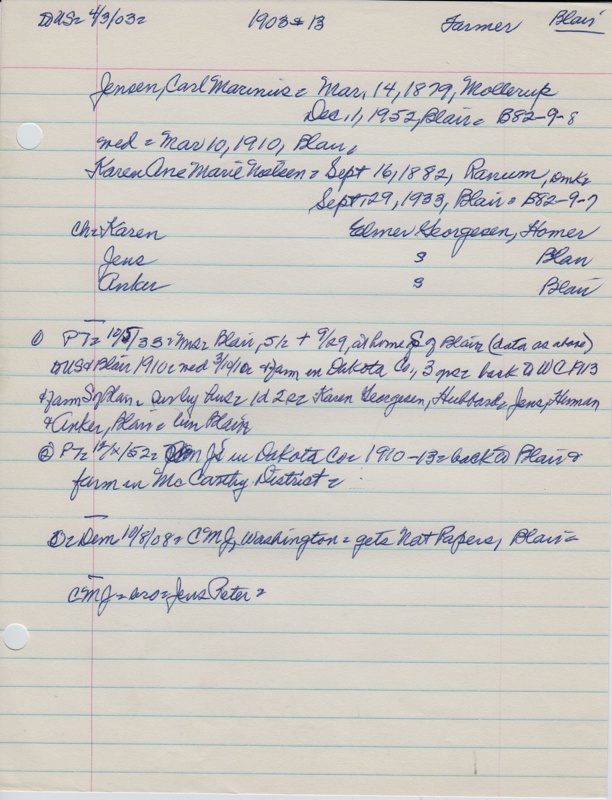 DUS= 4/3/03= 1903 + 13 Farmer Blair
Jensen, Carl Marinius = Mar. 14, 1879, Mollerup
Dec. 11, 1952, Blair = B82-9-8
med = Mar 10, 1910, Blair,
Karen Ane Marie Nielsen = Sept 16, 1882, Ranum, Dmk=
Sept. 29, 1933, Blair = B82-9-7
ch= Karen Elmer Georgesen, Homer
Jens 9 Blair
Anker 9 Blair
① PT= 10/5/33= Mrs Blair, 51= + 9/29, at home S of Blair (data as above)
DUS + Blair 1910= med 3/10/10 + farm in Dakota Co., 3 yrs= back to WC 1913
+ farm S of Blair = surv by hus= 1d 2s= Karen Georgesen, Hubbard= Jens, Herman
+ Anker, Blair = Blair
② PT= 152= in Dakota Co= 1910-13= back to Blair +
farm in McCarthy District=
D= Dem 10/8/08= CMJ, Washington = gets Nat Papers, Blair=
CMJ = bro= Jens Peter=